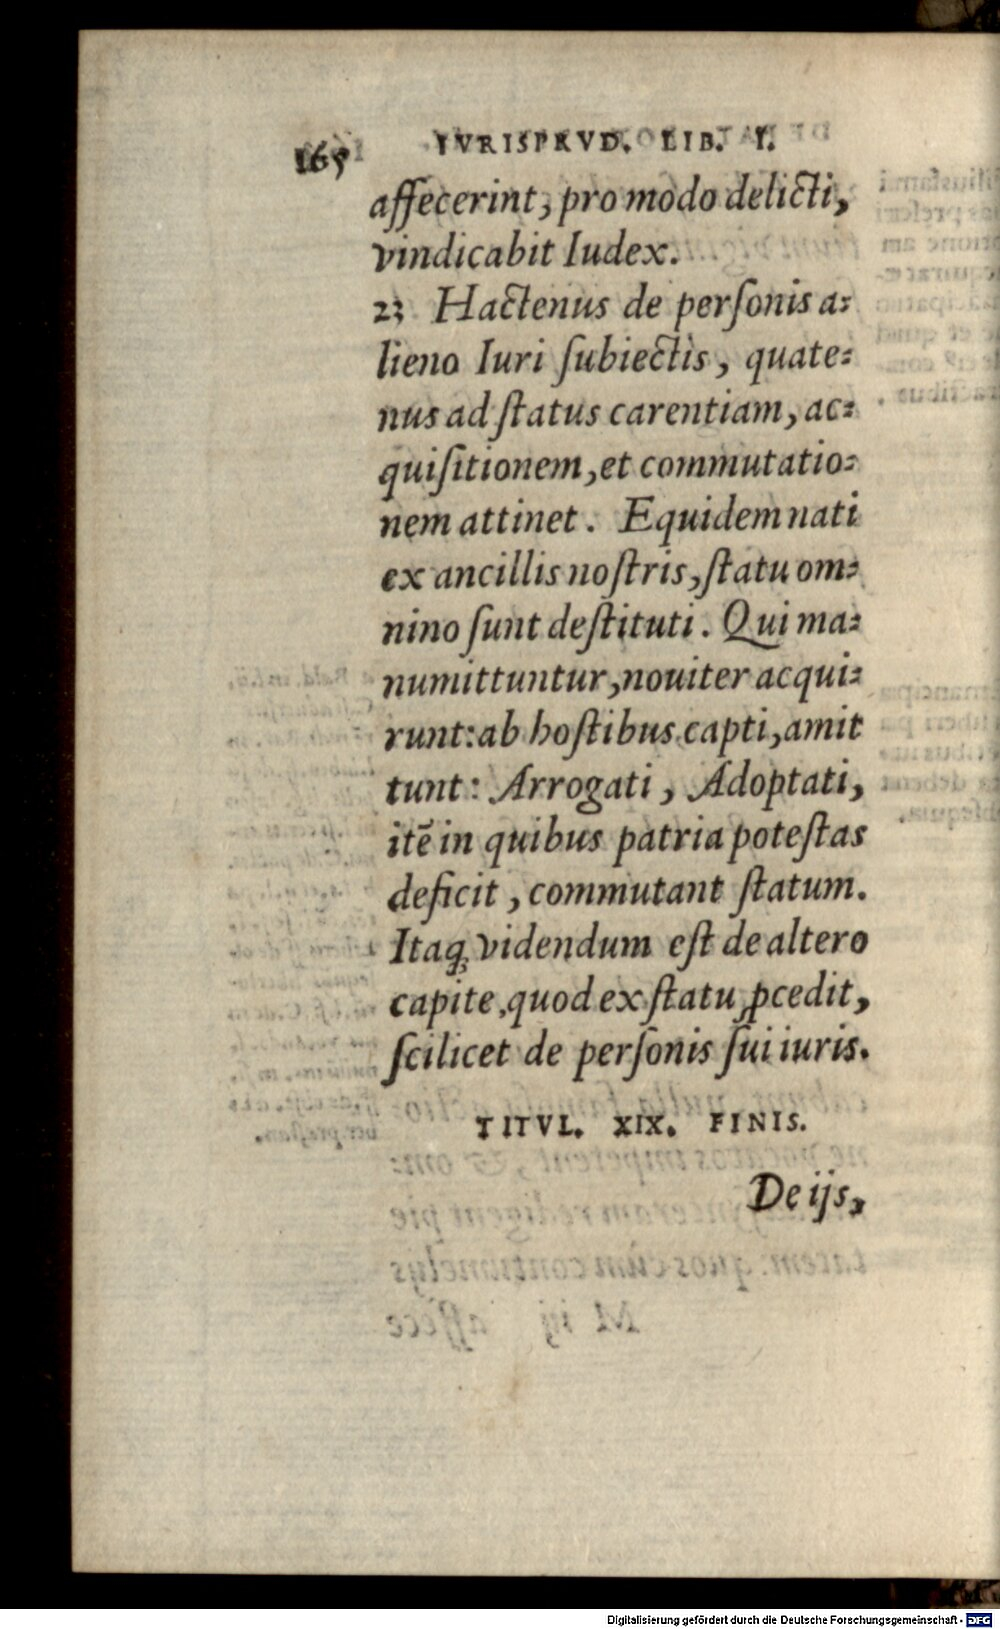 165 IVRISPRVD. LIB. I.
affecerint, pro modo delicti,
vindicabit Iudex.
23 Hactenus de perſonis a⸗
lieno Iuri ſubiectis, quate⸗
nus ad ſtatus carentiam, ac⸗
quiſitionem, et commutatio⸗
nem attinet. Equidem nati
ex ancillis noſtris, ſtatu om⸗
nino ſunt deſtituti. Qui ma⸗
numittuntur, nouiter acqui⸗
runt: ab hoſtibus capti, amit
tunt: Arrogati, Adoptati,
itē in quibus patria poteſtas
deficit, commutant ſtatum.
Itaq; videndum eſt de altero
capite, quod ex ſtatu ꝓcedit,
ſcilicet de perſonis ſui iuris.
TITVL. XIX. FINIS.
De ijs,
Digitalisierung gefördert durch die Deutsche Forschungsgemeinschaft - DFG